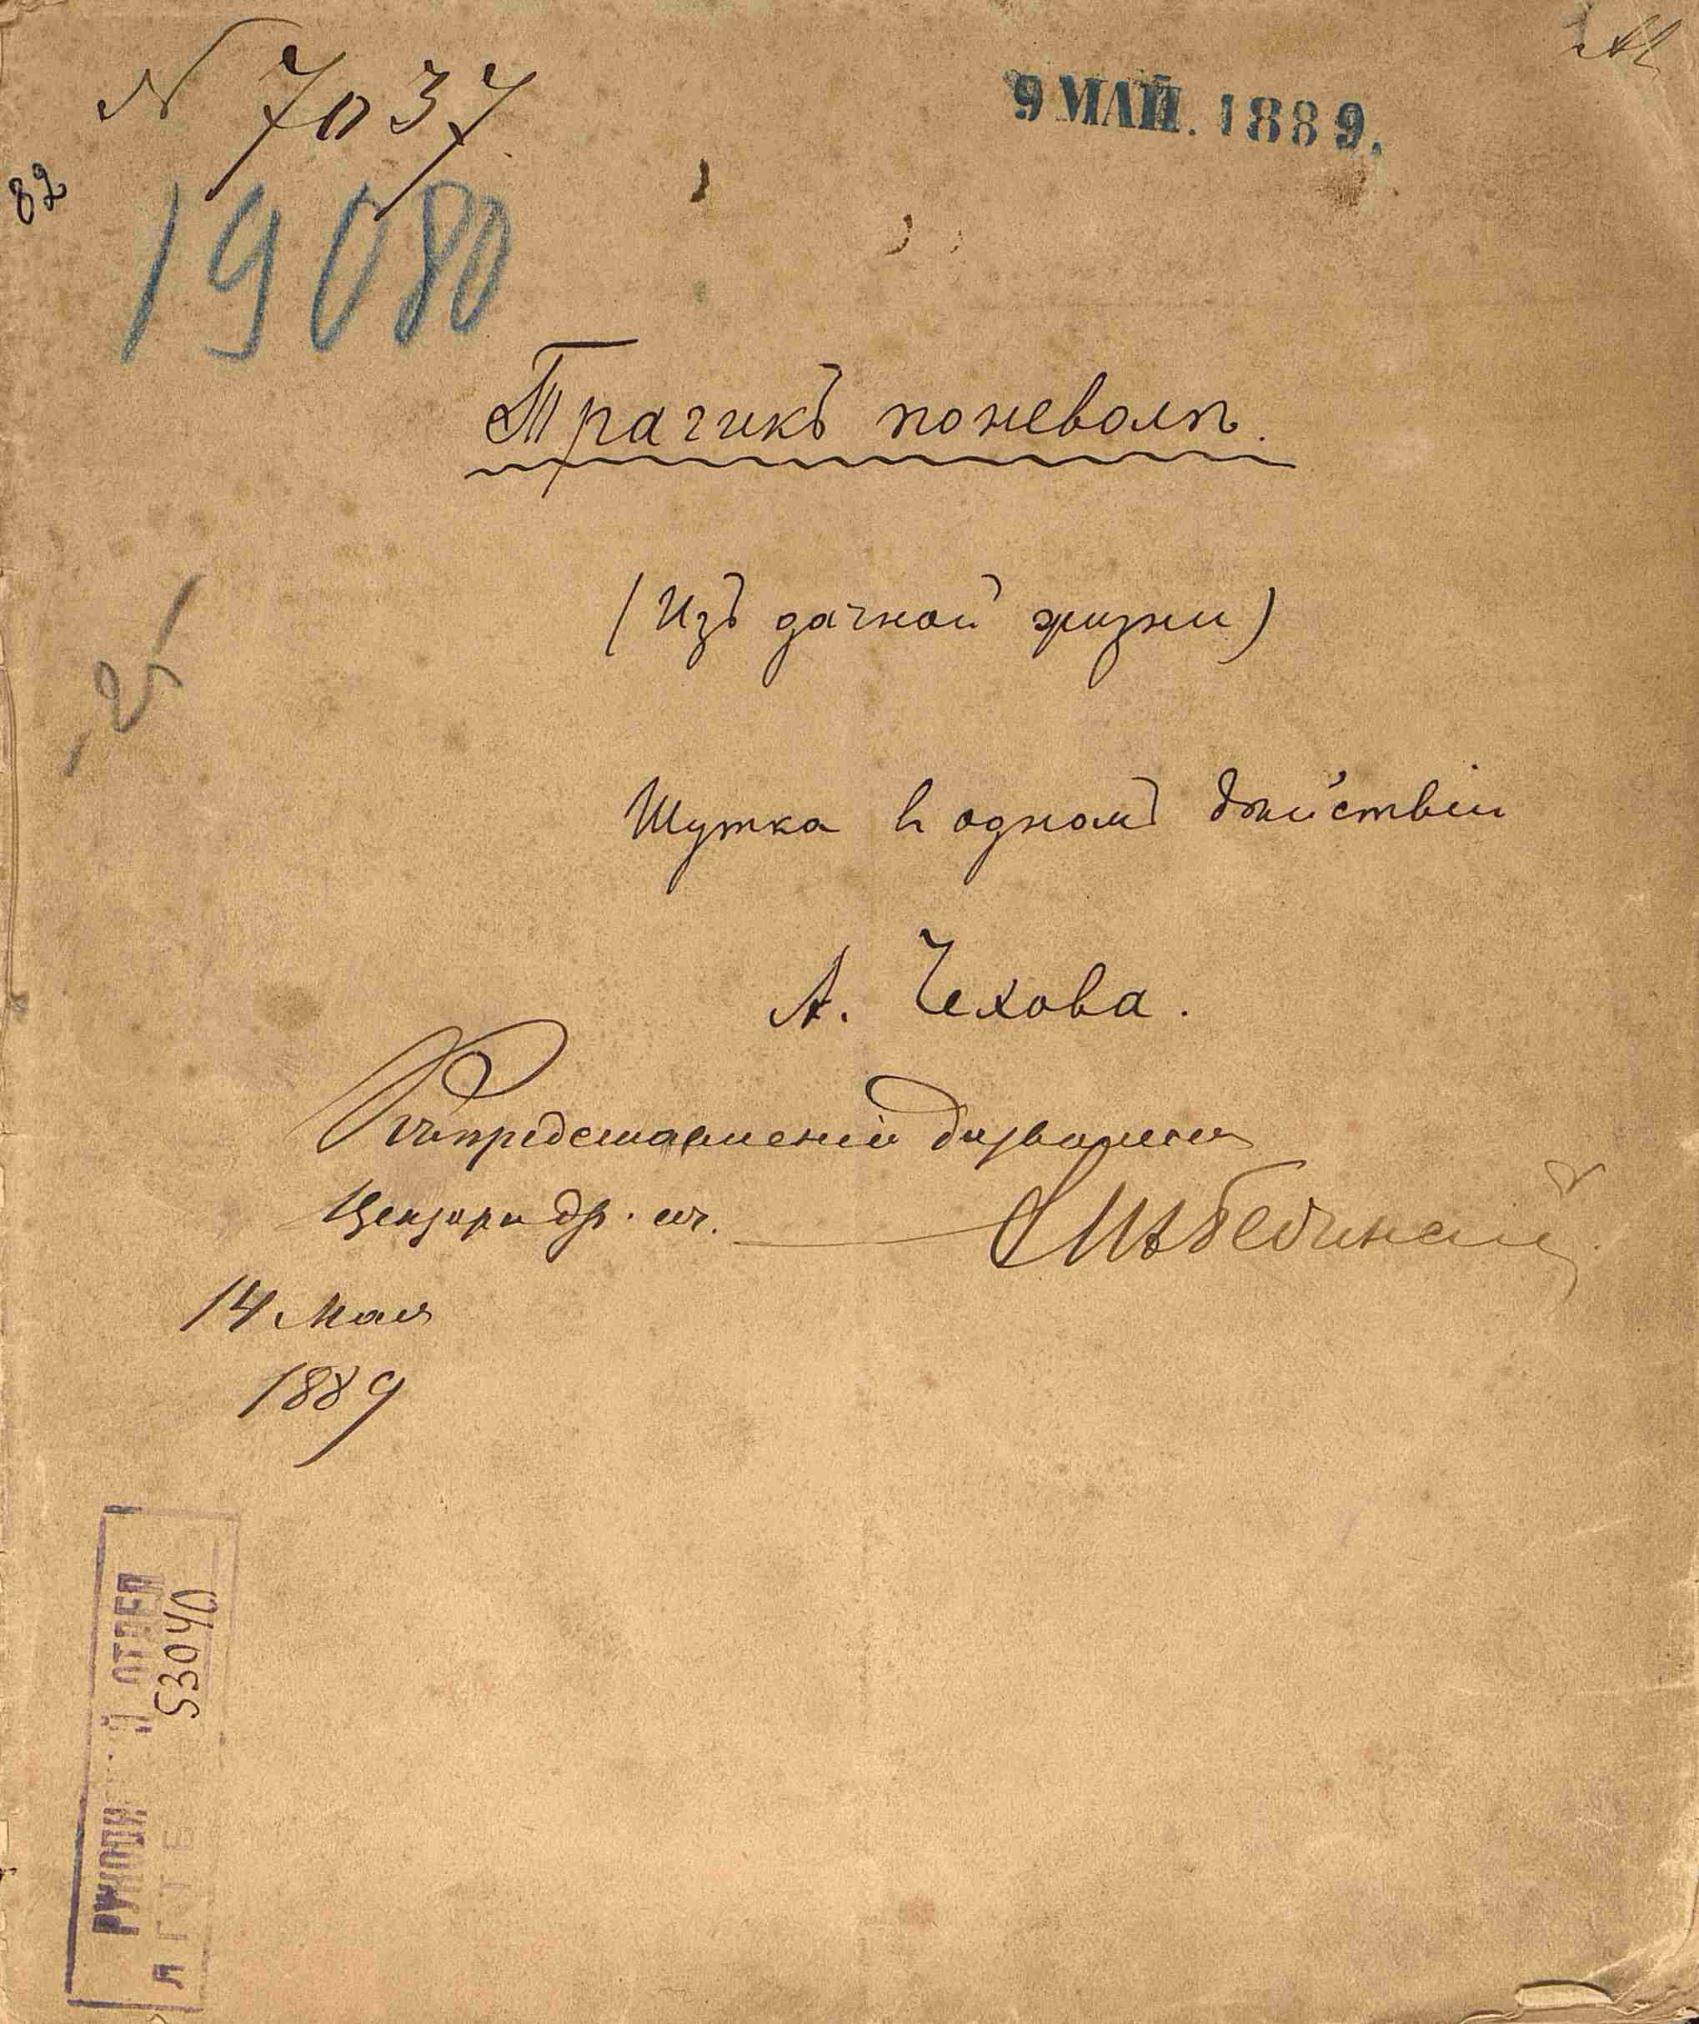 N 7037
9 МАЙ. 1889.
82
19080
Трагикъ поневолѣ.
(Изъ дачной жизни)
25
Шутка въ одномъ дѣйствіи
А. Чехова.
Къ представленію дозволено
Цензоръ др. соч.
14 Мая
1889
РУКОПИСНЫЙ ОТДЕЛ
ЛГТБ
53040